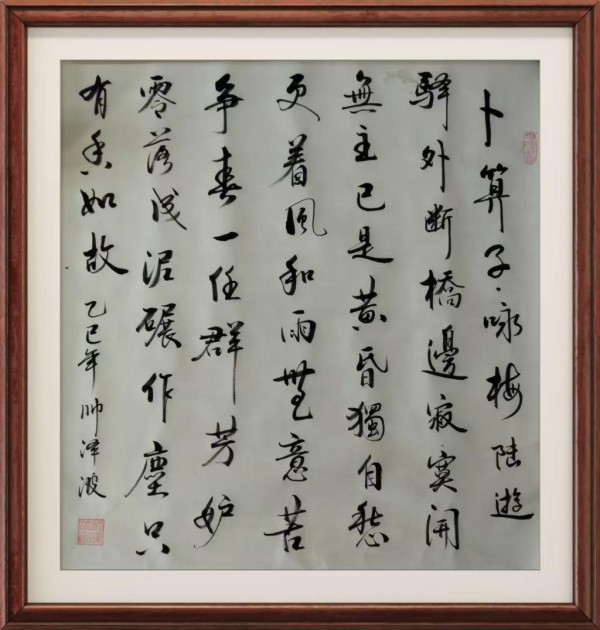 卜算子·咏梅 陸游
驿外断橋邊寂寞開
無主已是黄昏獨自愁
更着風和雨無意苦
争春一任群芳妒
零落成泥碾作塵只
有香如故 乙巳年 帅泽波